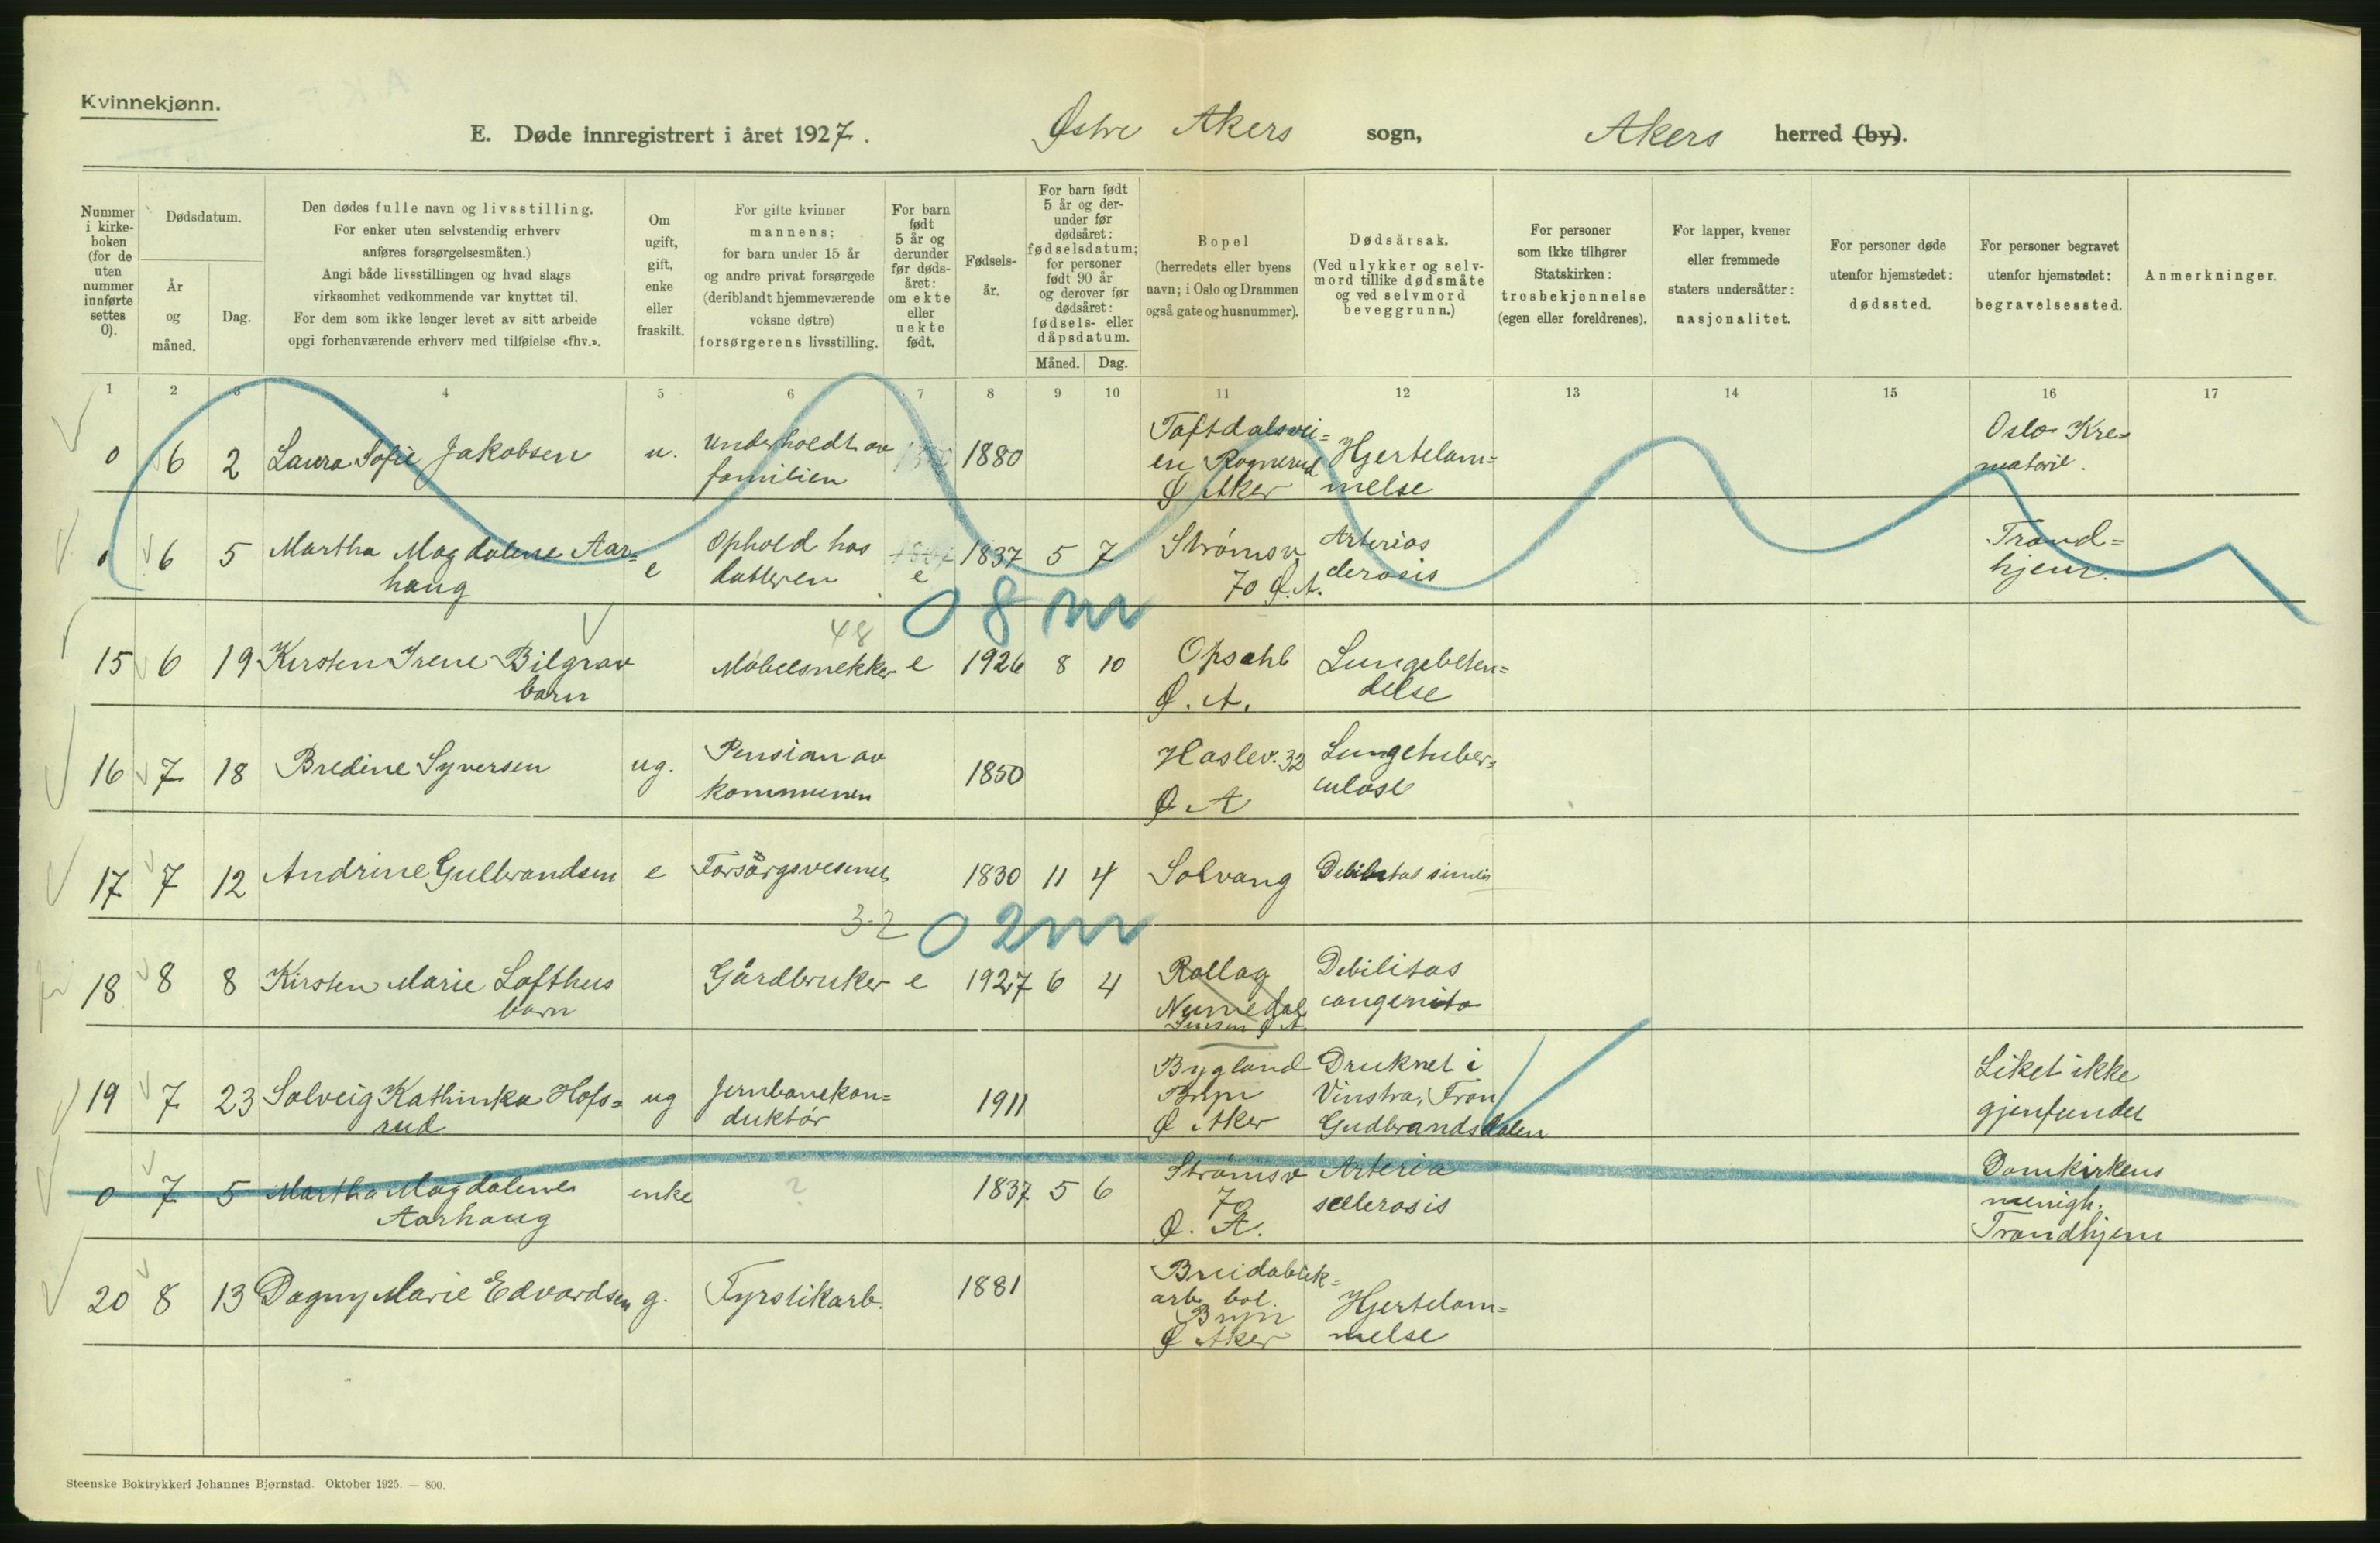 Kvinnekjønn.
E. Døde innregistrert i året 1927. Østre Akers sogn, Akers herred (by).
Nummer i kirkeboken (for de uten nummer innførte settes 0).
Dødsdatum.
År og måned.
Dag.
Den dødes fulle navn og livsstilling.
For enker uten selvstendig erhverv
anføres forsørgelsesmåten.)
Angi både livsstillingen og hvad slags
virksomhet vedkommende var knyttet til.
For dem som ikke lenger levet av sitt arbeide
opgi forhenværende erhverv med tilføielse «fhv.».
Om ugift, gift, enke eller fraskilt.
For gifte kvinner
mannens;
for barn under 15 år
og andre privat forsørgede
(deriblandt hjemmeværende
voksne døtre)
forsørgerens livsstilling.
For barn født 5 år og derunder før dødsåret: om ekte eller uekte født.
Fødselsår.
For barn født 5 år og derunder før dødsåret: fødselsdatum; for personer født 90 år og derover før dødsåret: fødsels- eller dåpsdatum.
Måned. Dag.
Bopel
(herredets eller byens
navn; i Oslo og Drammen
også gate og husnummer).
Dødsårsak.
(Ved ulykker og selvmord tillike dødsmåte og ved selvmord beveggrunn.)
For personer
som ikke tilhører
Statskirken:
trosbekjennelse
(egen eller foreldrenes).
For lapper, kvener
eller fremmede
staters undersåtter:
nasjonalitet.
For personer døde
utenfor hjemstedet:
dødssted.
For personer begravet
utenfor hjemstedet:
begravelsessted.
Anmerkninger.
1 2 3 4 5 6 7 8 9 10 11 12 13 14 15 16 17
0 6 2 Laura Sofie Jakobsen u. Underholdt av familien 1880 Ø Aker Hjertelam=melse Oslo Krematorie.
0 6 5 Martha Magdalene Aar=haug e Ophold hos datteren e 1837 5 7 Strømsv 70 Ø.A. Arterios clerosis Trond=hjem.
48 0 8 m
15 6 19 Kirsten Irene Bilgrav barn Møbelsnekker e 1926 8 10 Opsahl Ø.A. Lungebeten=delse
16 7 18 Bredine Syversen ug. Pensian av kommunen 1850 Haslev. 32 Ø A Lungetuber=culose
17 7 12 Andrine Gulbrandsen e Forsørgsvesenet 1830 11 4 Solvang Debilitas senilis
32 0 2 m
18 8 8 Kirsten Marie Lofthus barn Gårdbruker e 1927 6 4 Rollag Numedal Ø A. Debilitas congenita
19 7 23 Solveig Kathinka Hofs=rud ug Jernbanekon=duktør 1911 Bygland Bryn Ø Aker Druknet i Vinstra, Fron Gudbrandsdalen Liket ikke gjenfundet
0 7 5 Martha Magdalene Aarhaug enke ? 1837 5 6 Strømsv 70 Ø. A. Arteria scelerosis Domkirkens menigh. Trondhjem
20 8 13 Dagny Marie Edvardsen g. Fyrstikarb. 1881 Breidablik=arb. bol. Bryn Ø Aker Hjertelam=melse
Steenske Boktrykkeri Johannes Bjørnstad. Oktober 1925. — 800.